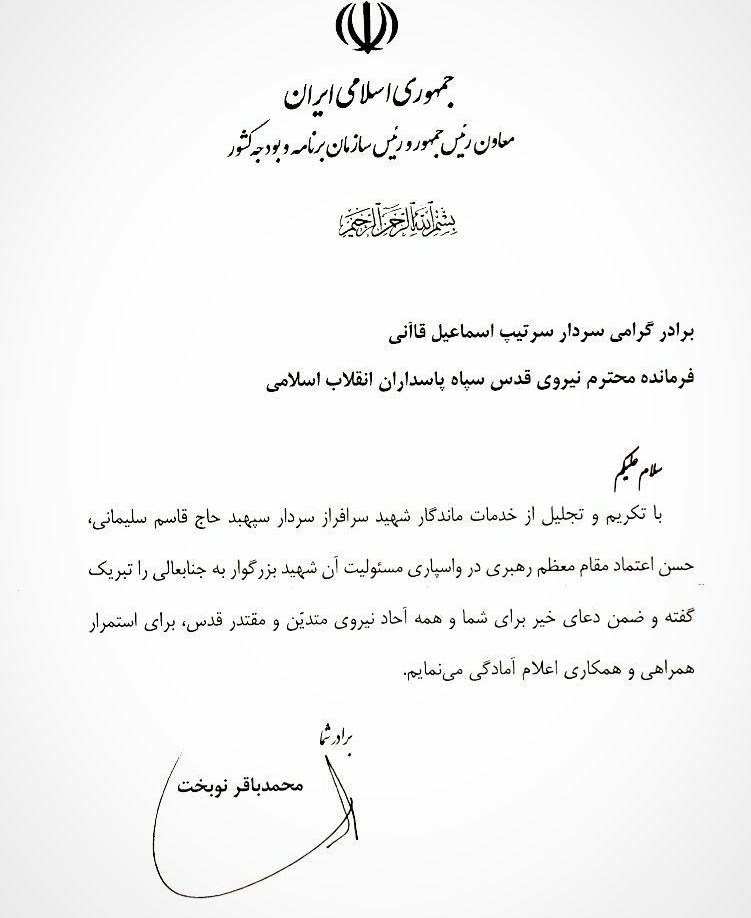 جمهوری اسلامی ایران
معاون رئیس جمهور و رئیس سازمان برنامه و بودجه کشور
بسم الله الرحمن الرحیم
برادر گرامی سردار سرتیپ اسماعیل قاآنی
فرمانده محترم نیروی قدس سپاه پاسداران انقلاب اسلامی
سلام علیکم
با تکریم و تجلیل از خدمات ماندگار شهید سرافراز سردار سپهبد حاج قاسم سلیمانی،
حسن اعتماد مقام معظم رهبری در واسپاری مسئولیت آن شهید بزرگوار به جنابعالی را تبریک
گفته و ضمن دعای خیر برای شما و همه آحاد نیروی متدیّن و مقتدر قدس، برای استمرار
همراهی و همکاری اعلام آمادگی می‌نمایم.
برادر شما
محمدباقر نوبخت